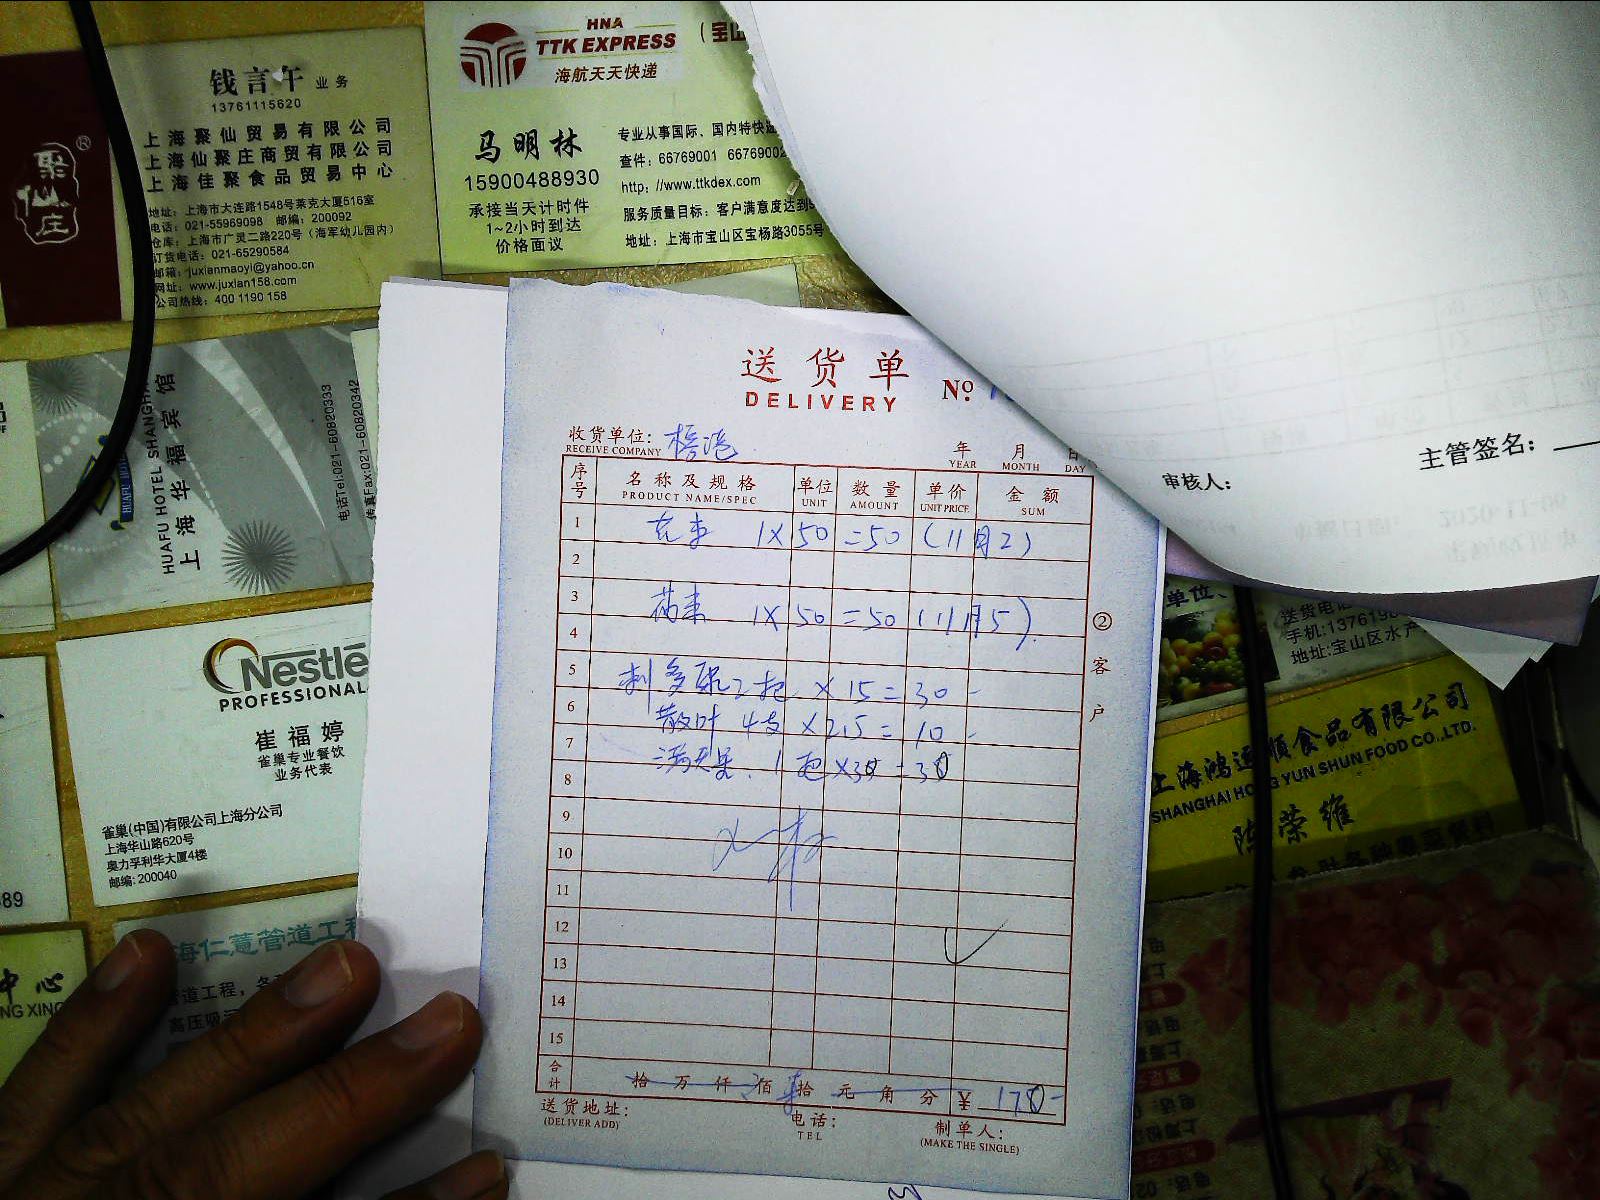 钱言午 业务
13761115620
上海聚仙贸易有限公司
上海仙聚庄商贸有限公司
上海佳聚食品贸易中心
地址：上海市大连路1548号莱克大厦516室
电话：021-55969098 邮编：200092
仓库：上海市广灵二路220号（海军幼儿园内）
订货电话：021-65290584
邮箱：juxianmaoyi@yahoo.cn
网址：www.juxian158.com
公司热线：400 1190 158
聚仙庄®
HNA
TTK EXPRESS
海航天天快递
（宝山
马明林
15900488930
承接当天计时件
1~2小时到达
价格面议
专业从事国际、国内特快
查件：66769001 66769002
http：//www.ttkdex.com
服务质量目标：客户满意度达到
地址：上海市宝山区宝杨路3055号
HUAFU HOTEL SHANGHA
上海华福宾馆
电话Tel:021-60820333
传真Fax:021-60820342
HUAFU HO
Nestlé
PROFESSIONAL
崔福婷
雀巢专业餐饮
业务代表
雀巢(中国)有限公司上海分公司
上海华山路620号
奥力孚利华大厦4楼
邮编: 200040
89
海仁薏管道工程
管道工程，各
高压吸
中心
NG XING
送货单
DELIVERY
No.
收货单位：
RECEIVE COMPANY
年 月 日
YEAR MONTH DAY
序号 名称及规格 单位 数量 单价 金额
PRODUCT NAME/SPEC UNIT AMOUNT UNIT PRICE SUM
1 1×50=50（11月2）
2
3 1×50=50（11月5）
4
5 2把×15=30-
6 散叶 4支×2.5=10-
7 满天星.1把×30=30
8
9
10
11
12
13
14
15
合计 拾万仟佰拾元角分 ¥ 170-
②客户
送货地址：
(DELIVER ADD)
电话：
TEL
制单人：
(MAKE THE SINGLE)
审核人：
主管签名：
单位、
送货电话
手机:137619
地址:宝山区水产
上海鸿运顺食品有限公司
SHANGHAI HONG YUN SHUN FOOD CO.,LTD.
陈荣维